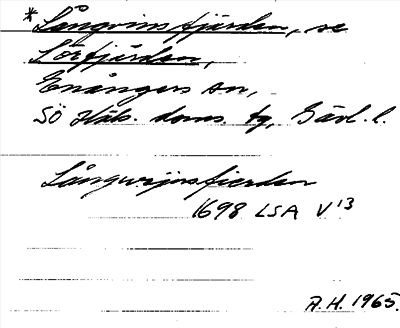 *Långvinsfjärden, se
Lörfjärden,
Enångers sn,
SÖ Häls. doms. tg, Gävl. l.
Långwijnsfierden
1698 LSA V 13
A.H. 1965.